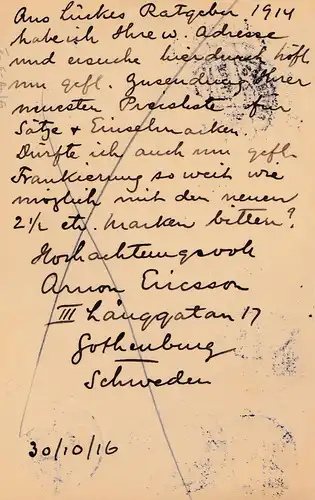 Aus Lückes Ratgeber 1914
habe ich Ihre w. Adresse
und ersuche hierdurch höfl.
um gefl. Zusendung Ihrer
neuesten Preisliste für
Sätze + Einzelmarken.
Dürfte ich auch um gefl.
Frankierung so weit wie
möglich mit den neuen
2½ ct. Marken bitten?
Hochachtungsvoll
Arnon Ericsson
III Långgatan 17
Gothenburg
Schweden
30/10/16